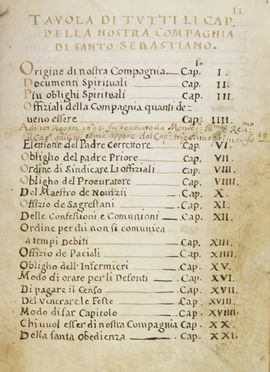 11
TAVOLA DI TVTTI LI CAP.
DELLA NOSTRA COMPAGNIA
DI SANTO SEBASTIANO.
Origine di nostra Compagnia Cap. I.
Documenti Spirituali Cap. II.
Piu oblighi Spirituali Cap. III.
Offiziali della Compagnia quanti de
ueno essere Cap. IIII.
Elettione del Padre Correttore. Cap. VI.
Obligho del padre Priore Cap. VII.
Ordine di Sindicare Li offiziali Cap. VIII.
Obligho del Procuratore Cap. VIIII
Del Maestro de Nouizii Cap. X.
Ofizio de Sagrestani Cap. XI.
Delle Confessioni e Comunioni Cap. XII.
Ordine per chi non si comunica
a tempi Debiti Cap. XIII.
Offizio de Paciali Cap. XIIII.
Obligho dell'Infermieri Cap. XV.
Modo di orare per li Defonti Cap. XVI.
Di pagare il Censo Cap. XVII.
Del venerare le Feste Cap. XVIII.
Modo di far Capitolo Cap. XVIIII.
Chi vuol esser di nostra Compagnia Cap. XX.
Della santa obedienza Cap. XXI.